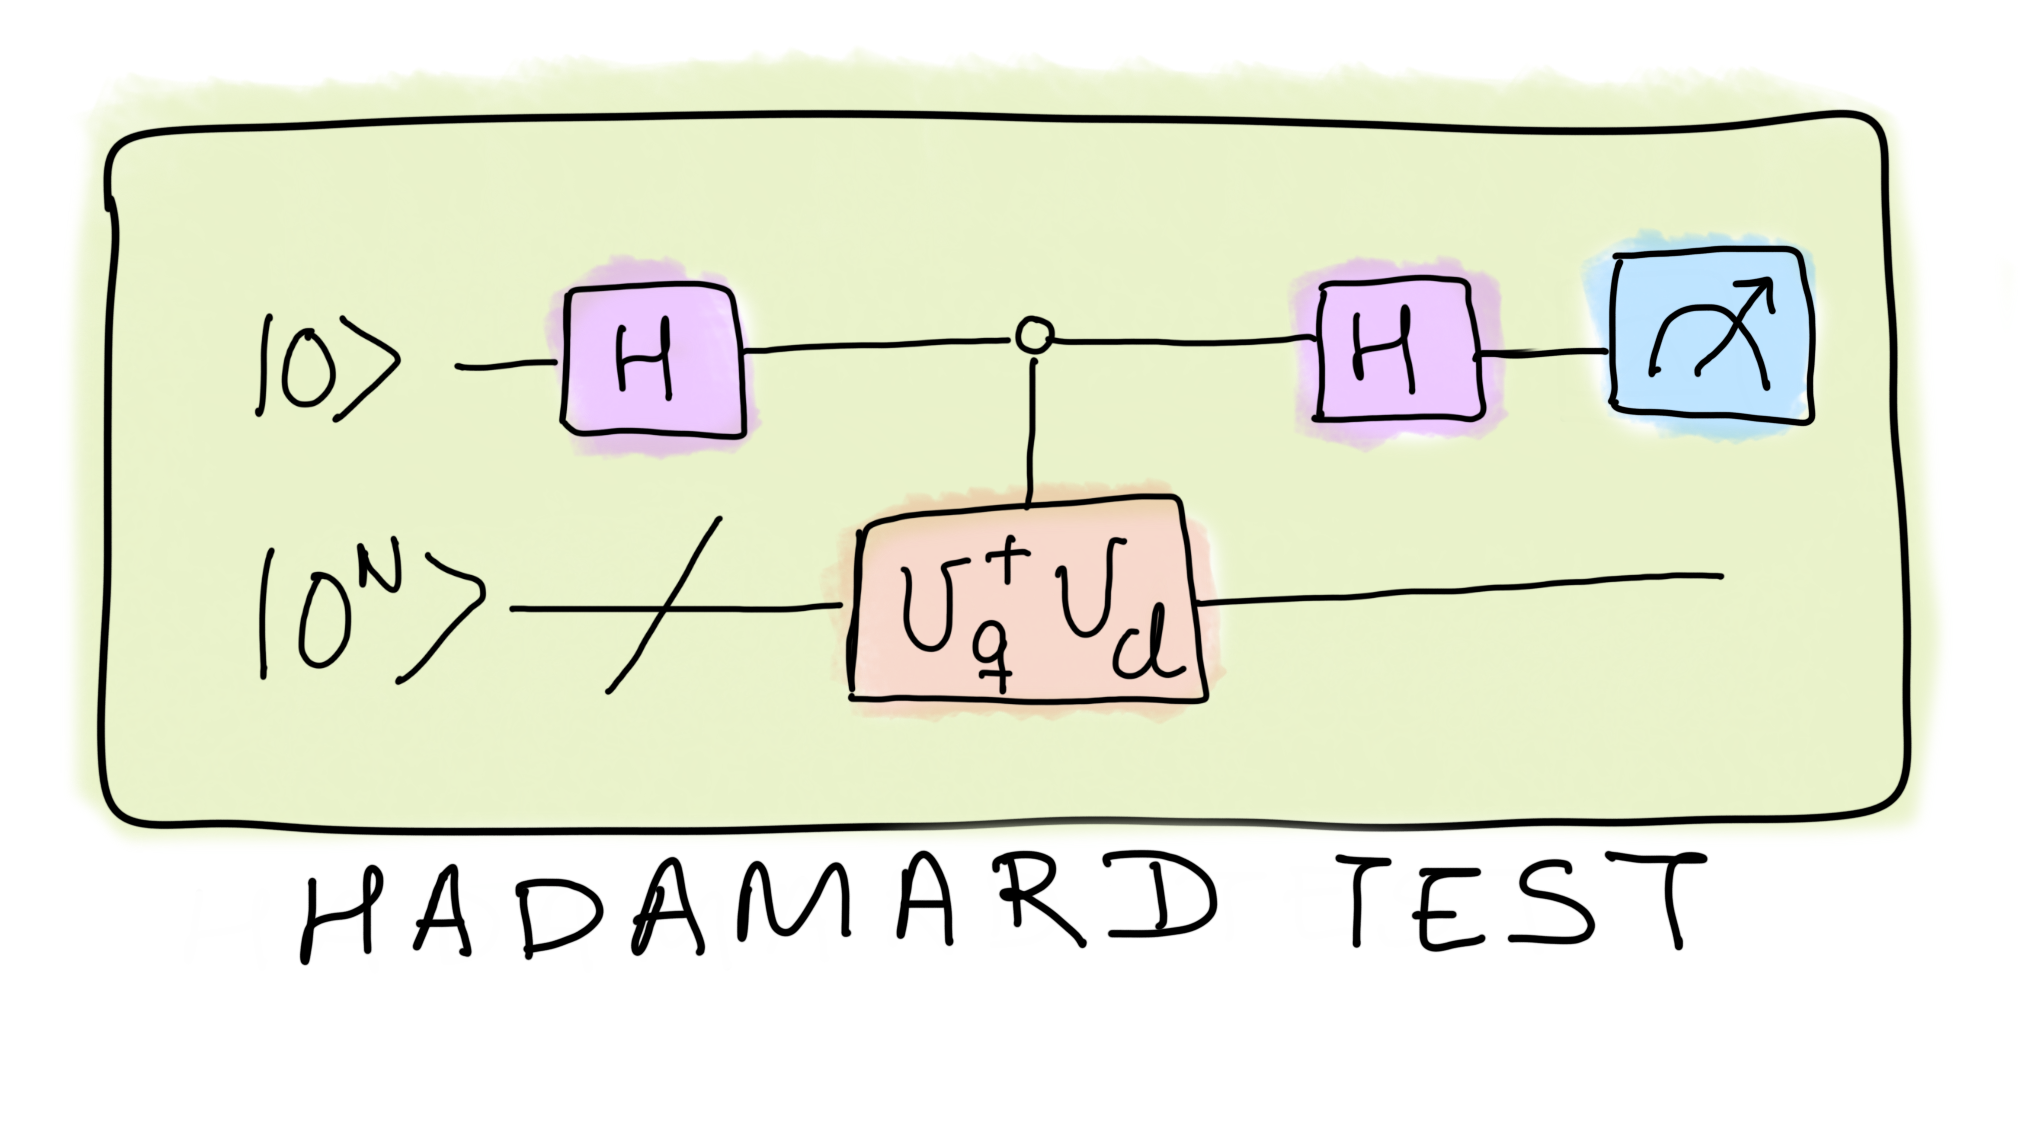 |0⟩ H H
|0ᴺ⟩ U†q Ud
HADAMARD TEST